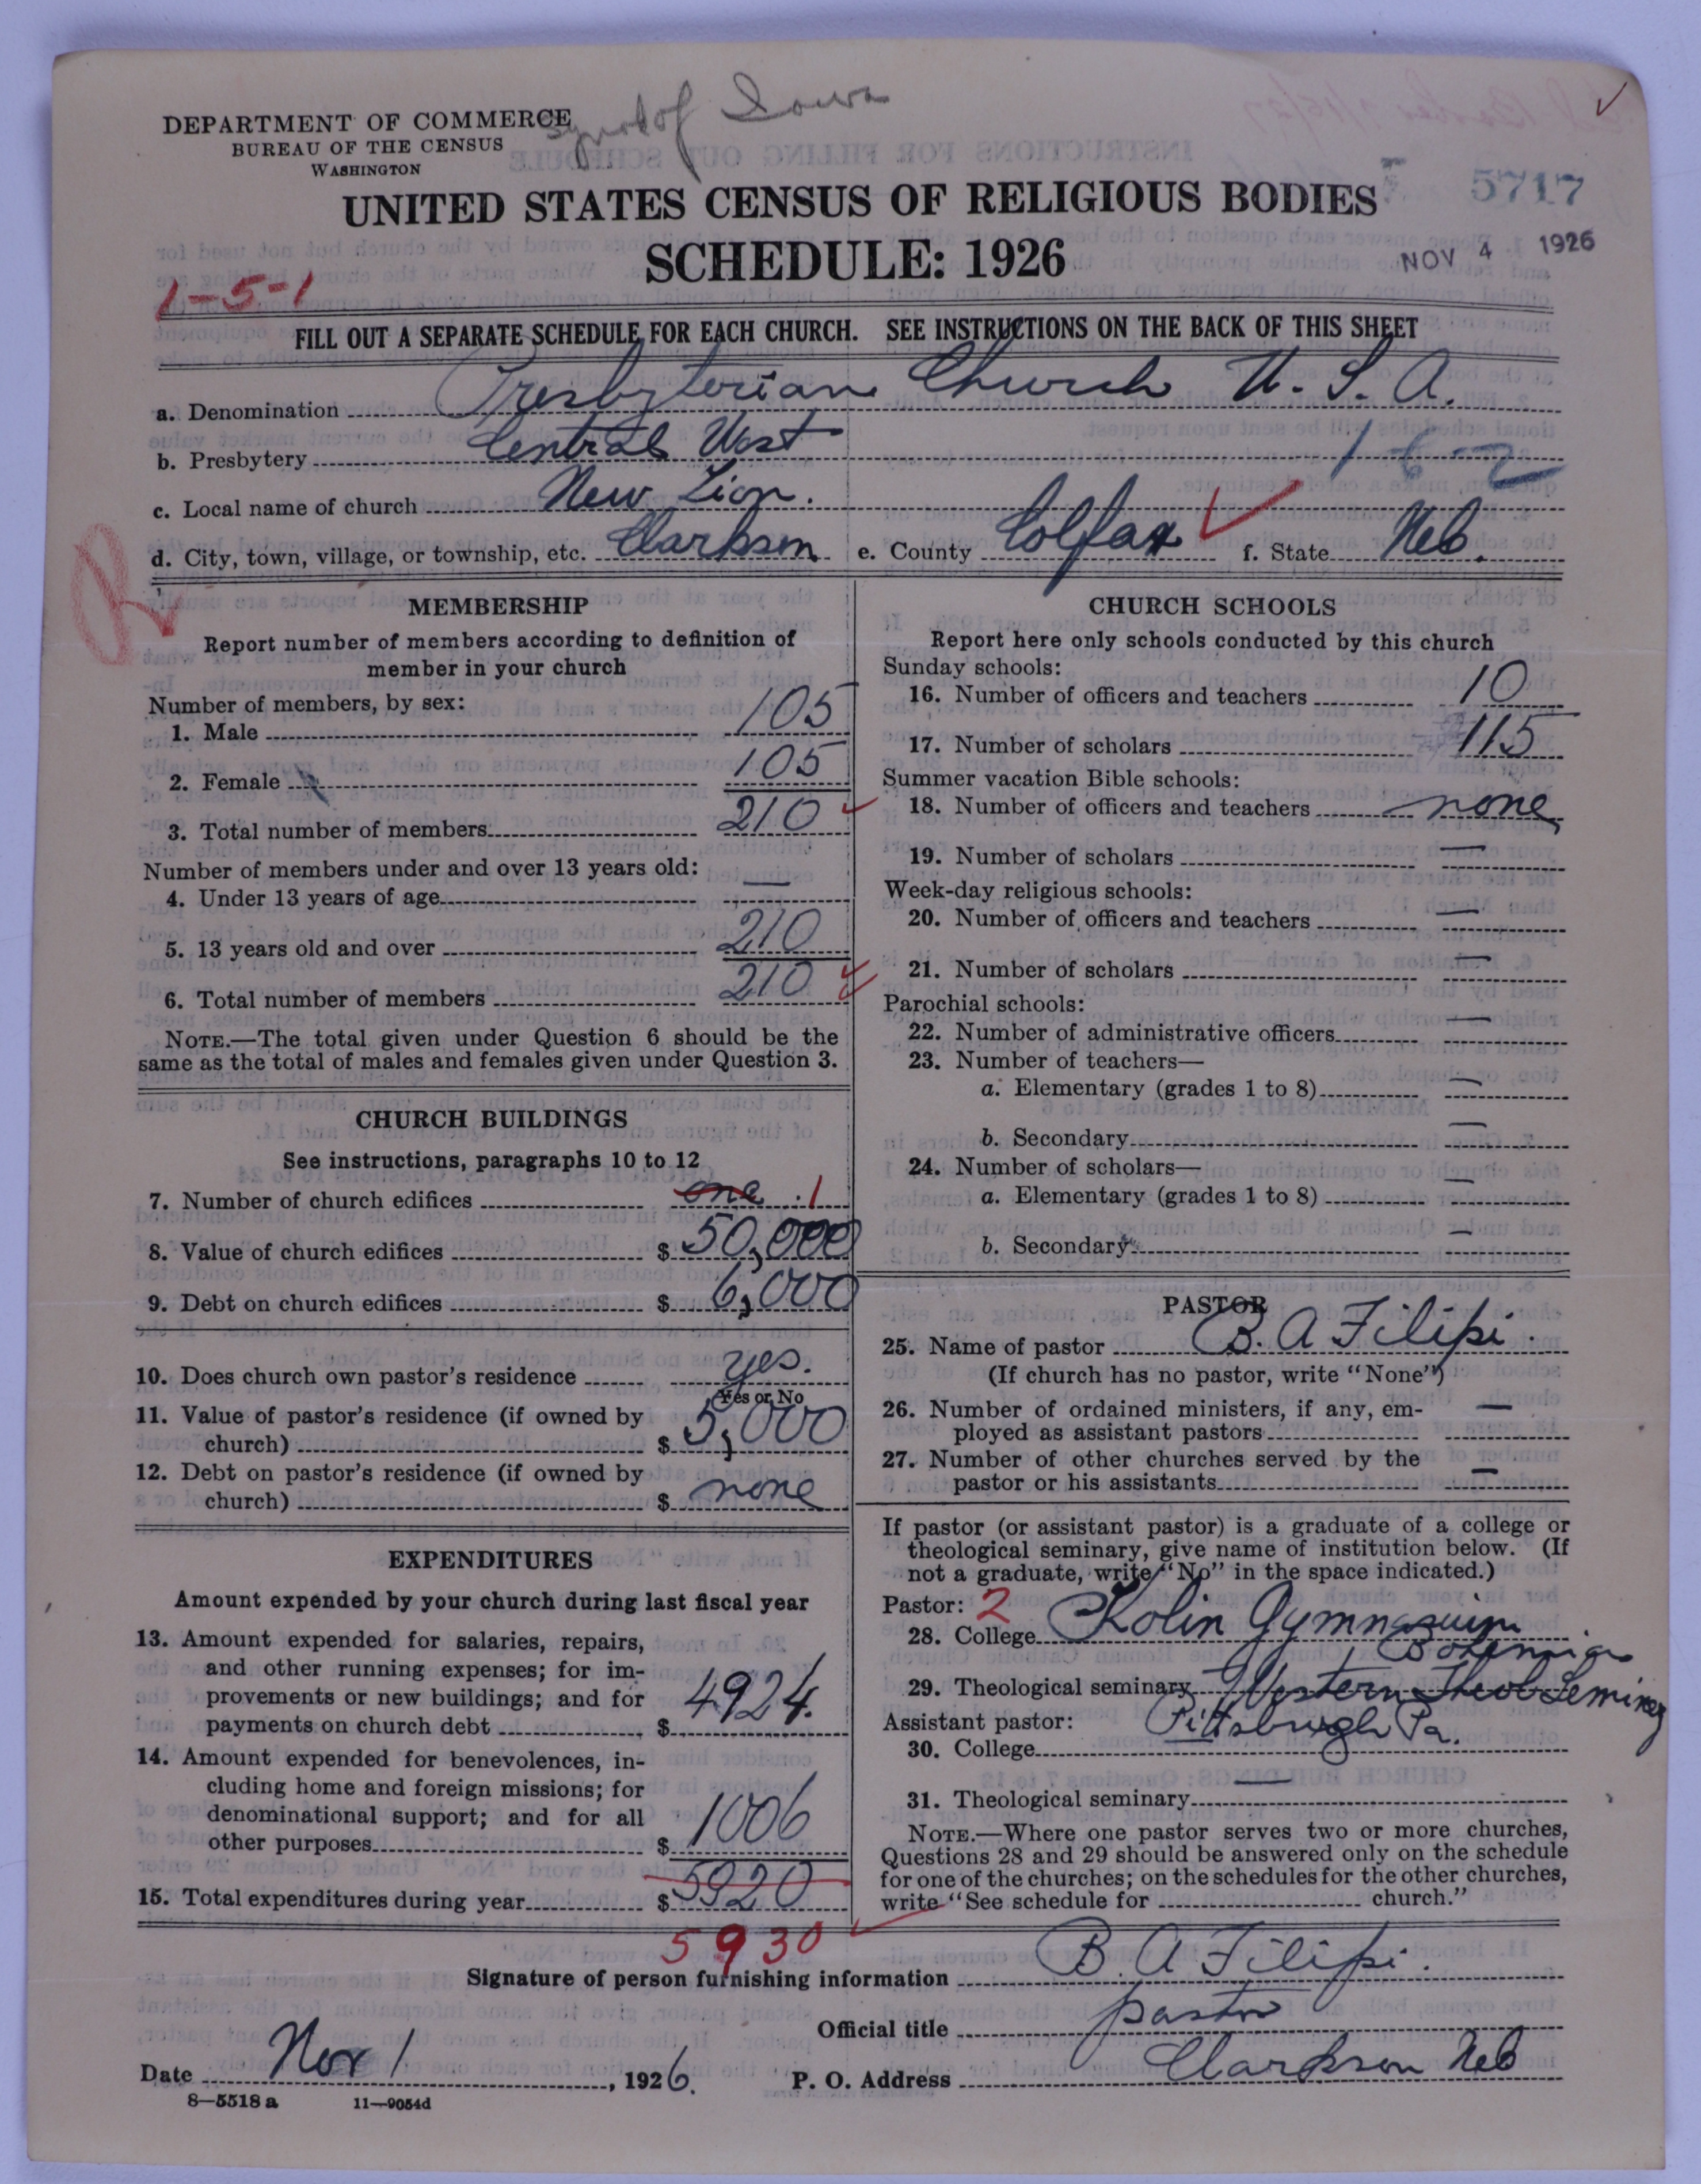 Synod of Iowa
DEPARTMENT OF COMMERCE
BUREAU OF THE CENSUS
WASHINGTON
UNITED STATES CENSUS OF RELIGIOUS BODIES
5717
SCHEDULE: 1926
NOV 4 1926
1-5-1
FILL OUT A SEPARATE SCHEDULE FOR EACH CHURCH. SEE INSTRUCTIONS ON THE BACK OF THIS SHEET
a. Denomination Presbyterian Church U. S. A.
b. Presbytery Central West
1-6-2
c. Local name of church New Zion.
d. City, town, village, or township, etc. Clarkson e. County Colfax f. State Neb.
R
MEMBERSHIP
Report number of members according to definition of
member in your church
Number of members, by sex:
1. Male 105
2. Female 105
3. Total number of members 210
Number of members under and over 13 years old:
4. Under 13 years of age —
5. 13 years old and over 210
6. Total number of members 210
NOTE.—The total given under Question 6 should be the
same as the total of males and females given under Question 3.
CHURCH BUILDINGS
See instructions, paragraphs 10 to 12
7. Number of church edifices one 1
8. Value of church edifices $ 50,000
9. Debt on church edifices $ 6,000
10. Does church own pastor's residence yes.
Yes or No
11. Value of pastor's residence (if owned by
church) $ 5,000
12. Debt on pastor's residence (if owned by
church) $ none
EXPENDITURES
Amount expended by your church during last fiscal year
13. Amount expended for salaries, repairs,
and other running expenses; for im-
provements or new buildings; and for
payments on church debt $ 4924.
14. Amount expended for benevolences, in-
cluding home and foreign missions; for
denominational support; and for all
other purposes $ 1006
15. Total expenditures during year $ 5920
5930
CHURCH SCHOOLS
Report here only schools conducted by this church
Sunday schools:
16. Number of officers and teachers 10
17. Number of scholars 115
Summer vacation Bible schools:
18. Number of officers and teachers none
19. Number of scholars —
Week-day religious schools:
20. Number of officers and teachers —
21. Number of scholars —
Parochial schools:
22. Number of administrative officers —
23. Number of teachers—
a. Elementary (grades 1 to 8) —
b. Secondary —
24. Number of scholars—
a. Elementary (grades 1 to 8) —
b. Secondary —
PASTOR
25. Name of pastor B. A Filipi.
(If church has no pastor, write "None")
26. Number of ordained ministers, if any, em-
ployed as assistant pastors —
27. Number of other churches served by the
pastor or his assistants —
If pastor (or assistant pastor) is a graduate of a college or
theological seminary, give name of institution below. (If
not a graduate, write "No" in the space indicated.)
Pastor: 2
28. College Kolin Gymnasium
Bohemia
29. Theological seminary Western Theol Seminary
Assistant pastor: Pittsburgh Pa.
30. College
31. Theological seminary —
NOTE.—Where one pastor serves two or more churches,
Questions 28 and 29 should be answered only on the schedule
for one of the churches; on the schedules for the other churches,
write "See schedule for church."
Signature of person furnishing information B. A Filipi.
Official title pastor
Date Nov 1, 1926. P. O. Address Clarkson Neb
8—5518 a 11—9054d